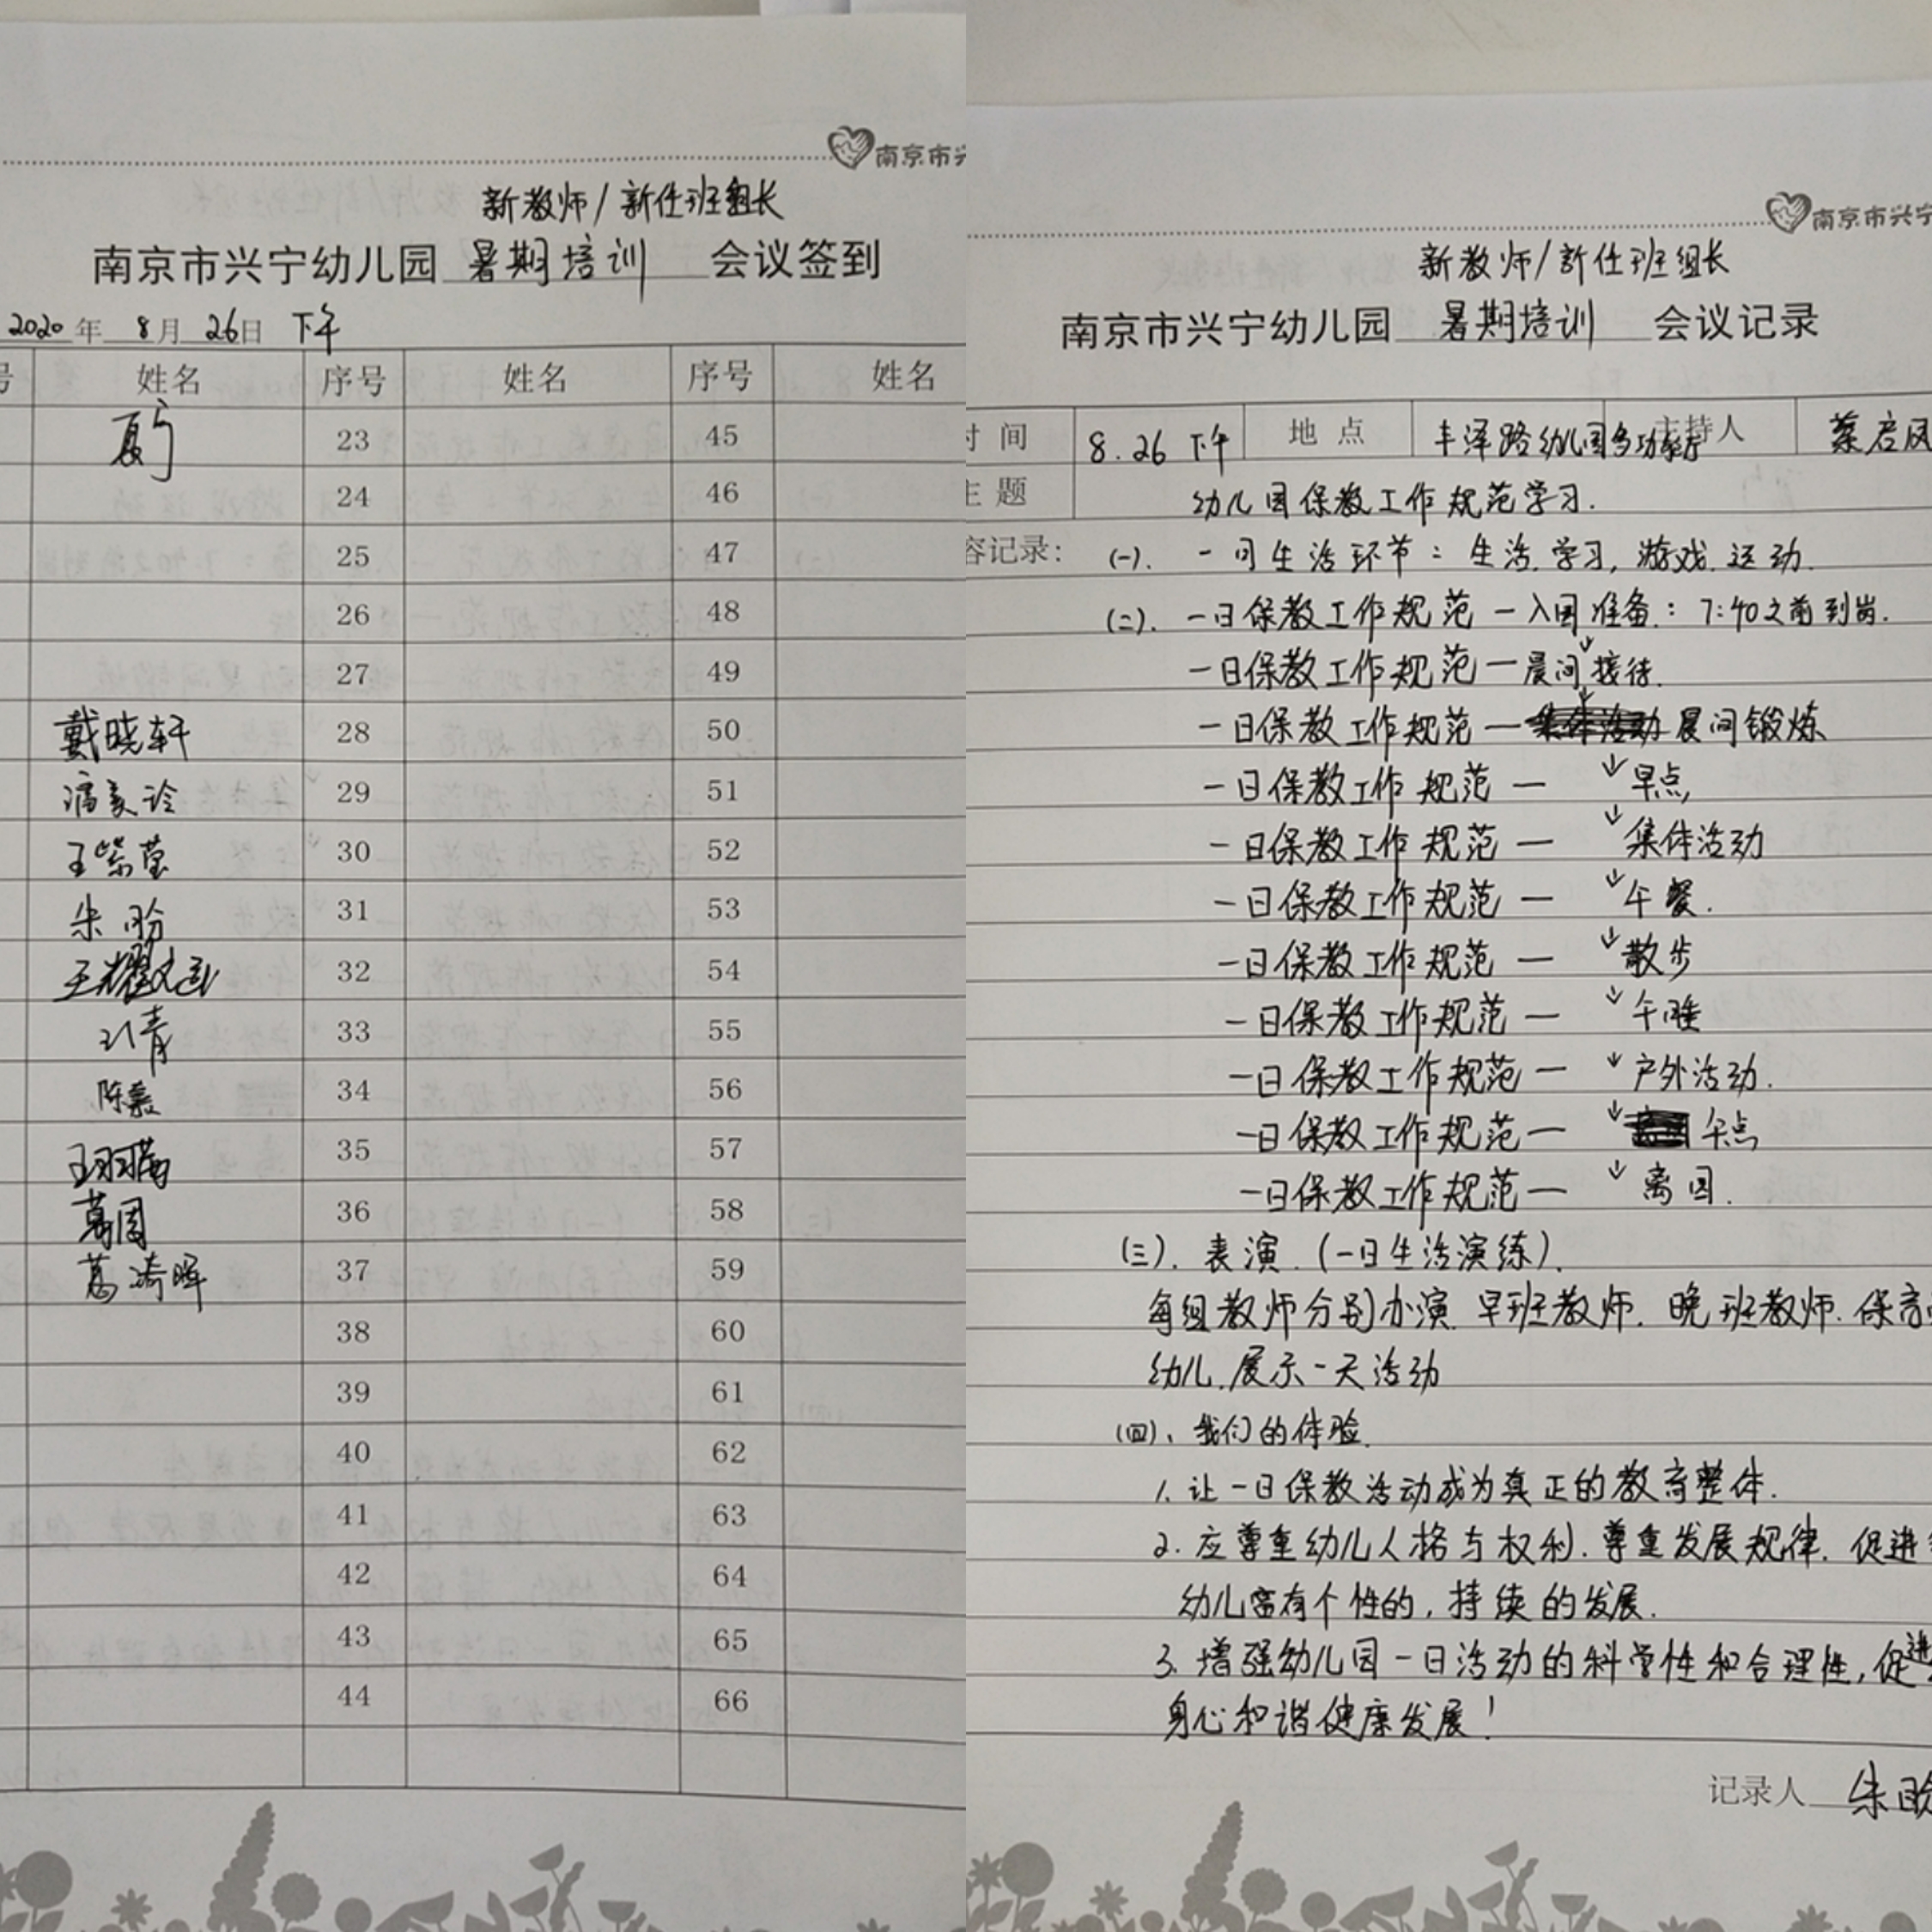 南京市兴
新教师/新任班组长
南京市兴宁幼儿园 暑期培训 会议签到
2020年 8月 26日 下午
号 姓名 序号 姓名 序号 姓名
23 45
24 46
25 47
26 48
27 49
戴晓轩 28 50
29 51
王紫莹 30 52
朱昐 31 53
32 54
33 55
34 56
35 57
葛周 36 58
37 59
38 60
39 61
40 62
41 63
42 64
43 65
44 66
南京市兴宁
新教师/新任班组长
南京市兴宁幼儿园 暑期培训 会议记录
时间 8.26 下午 地点 丰泽路幼儿园多功能厅 主持人
主题 幼儿园保教工作规范学习.
容记录: (一). 一日生活环节:生活.学习,游戏.运动.
(二). 一日保教工作规范—入园准备:7:40之前到岗.
一日保教工作规范—晨间接待.
一日保教工作规范—集体活动 晨间锻炼
一日保教工作规范— ↓早点
一日保教工作规范— ↓集体活动
一日保教工作规范— ↓午餐.
一日保教工作规范— ↓散步
一日保教工作规范— ↓午睡
一日保教工作规范— ↓户外活动.
一日保教工作规范— ↓午点
一日保教工作规范— ↓离园.
(三). 表演.(一日生活演练).
每组教师分别办演 早班教师. 晚班教师. 保育
幼儿.展示一天活动
(四)、我们的体验.
1. 让一日保教活动成为真正的教育整体.
2. 应尊重幼儿人格与权利.尊重发展规律. 促进
幼儿富有个性的,持续的发展.
3. 增强幼儿园一日活动的科学性和合理性,促进
身心和谐健康发展!
记录人 朱昐